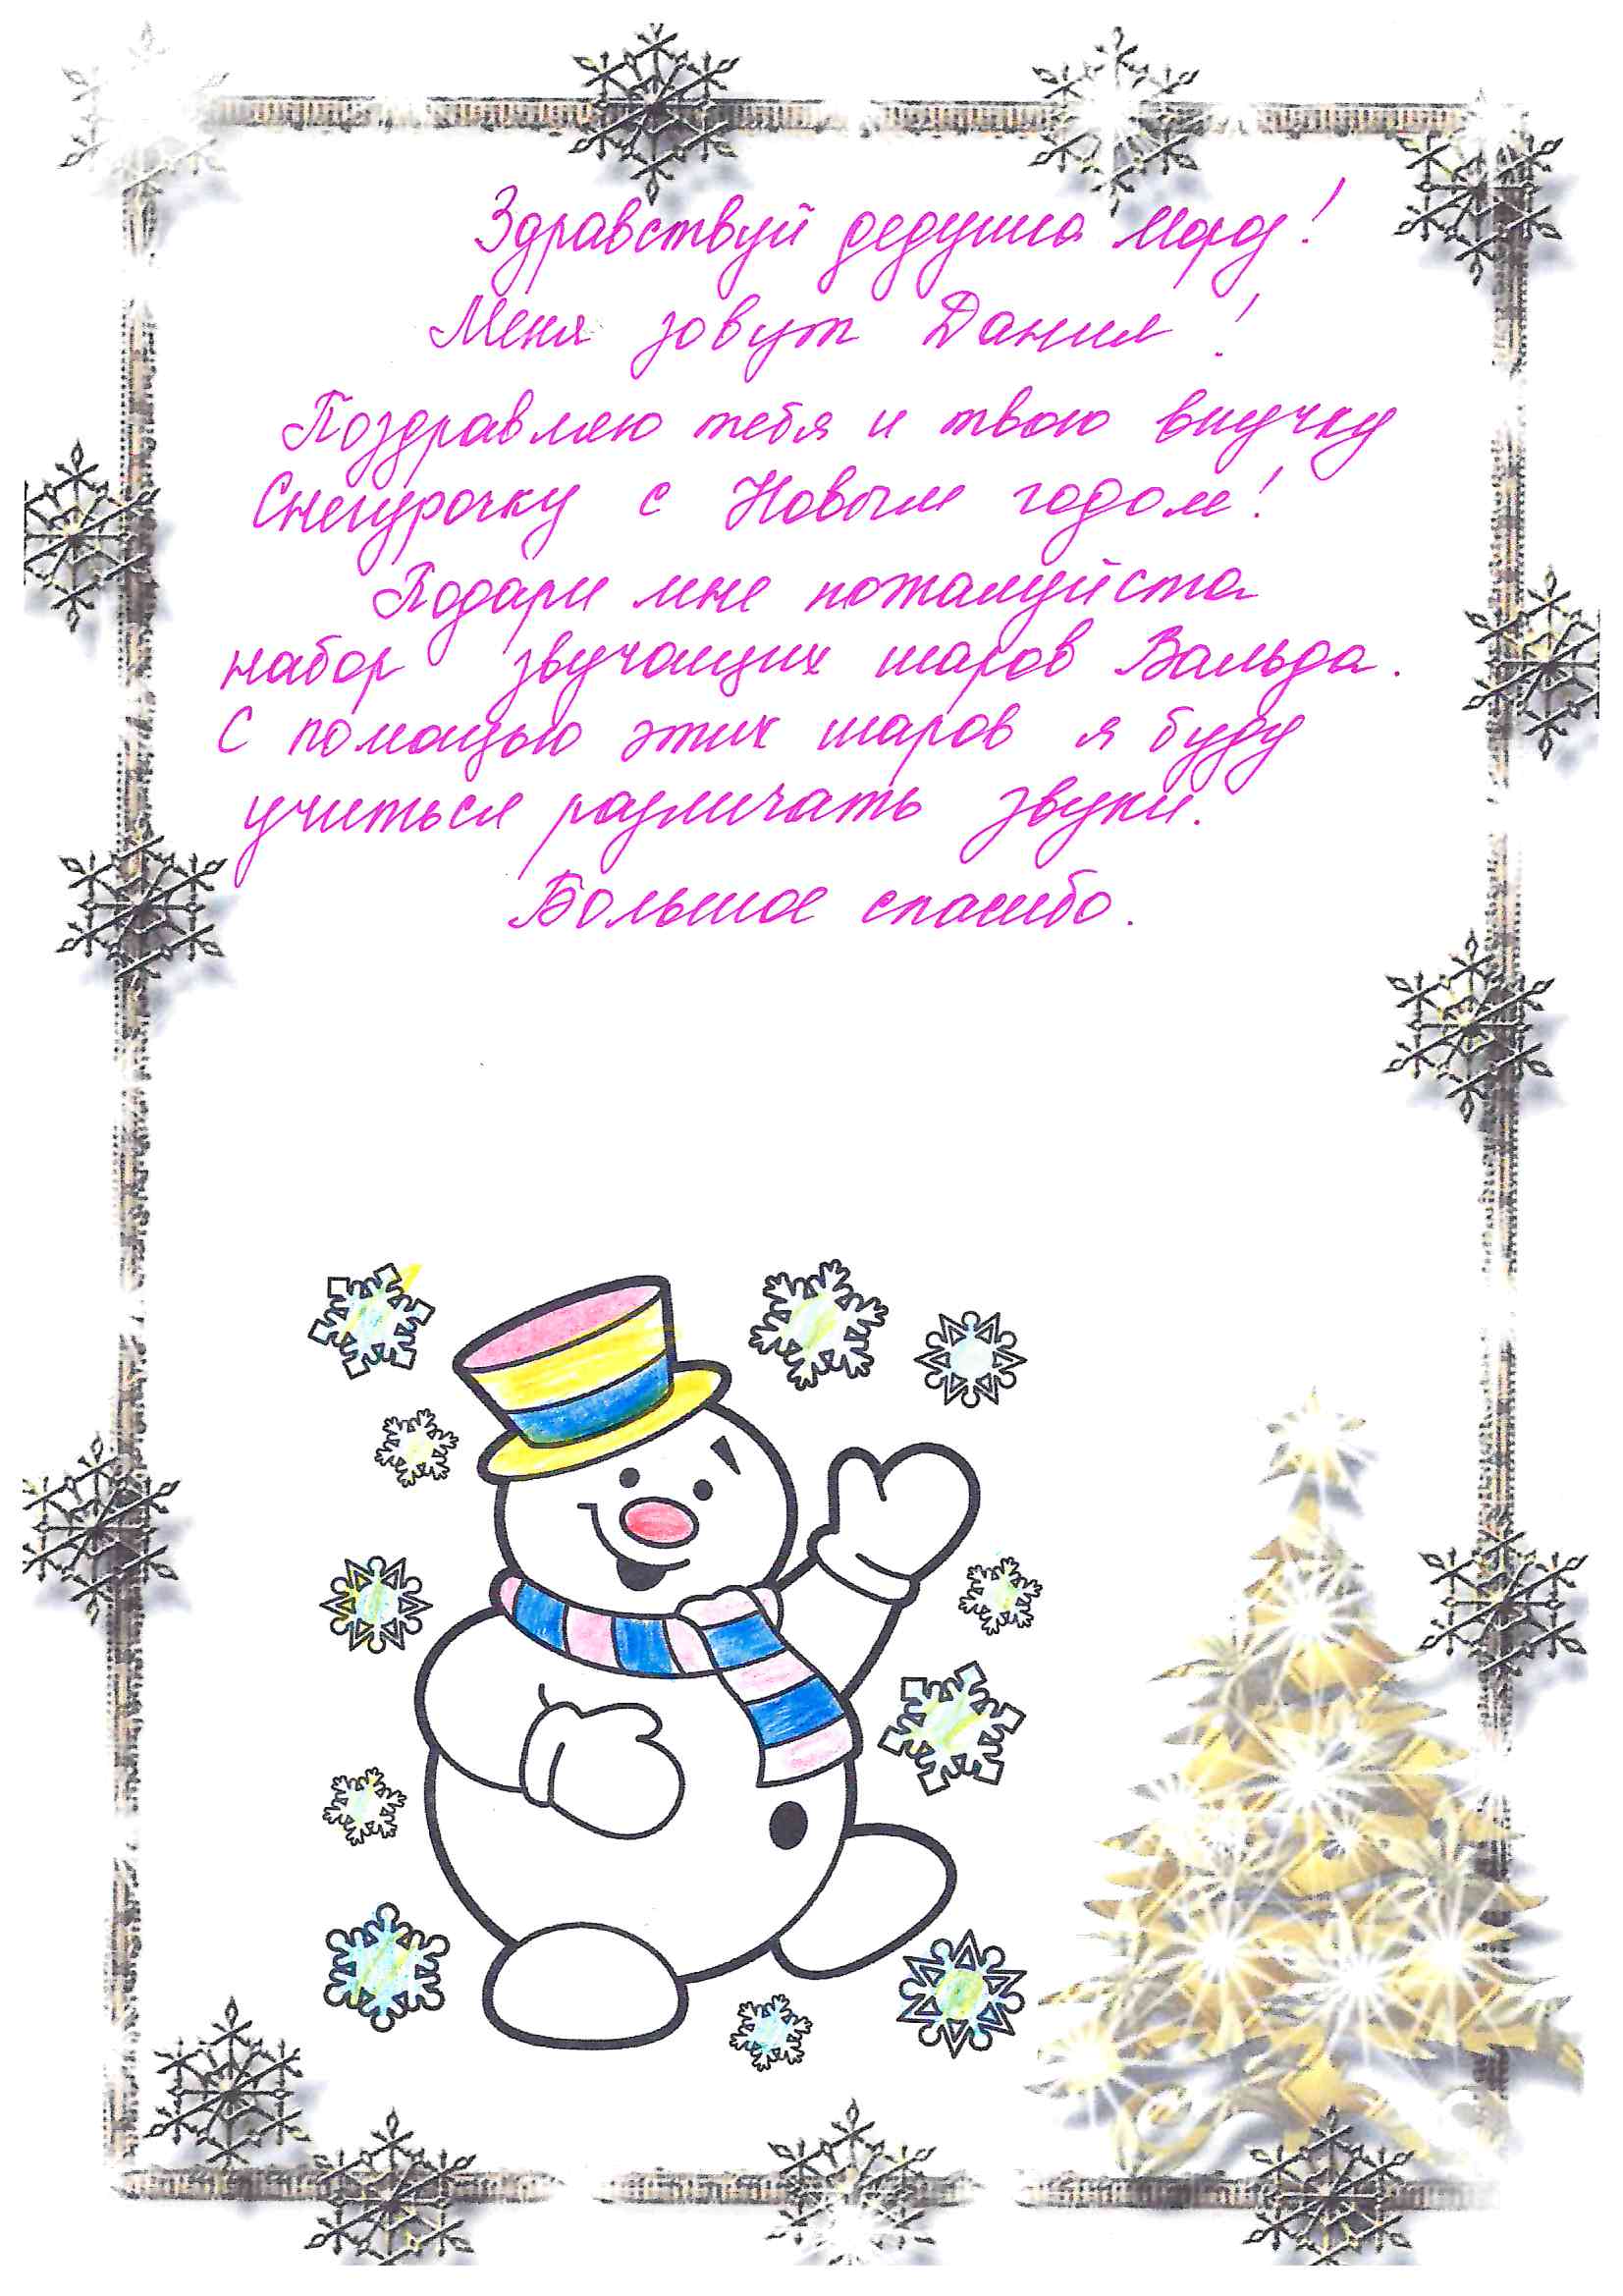 Здравствуй дедушка Мороз!
Меня зовут Данил!
Поздравляю тебя и твою внучку
Снегурочку с Новым годом!
Подари мне пожалуйста
набор звучащих шаров Вальда.
С помощью этих шаров я буду
учиться различать звуки.
Большое спасибо.